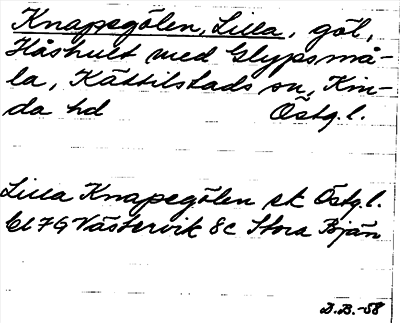 Knapegölen, Lilla, göl,
Håshult med Glypsmå-
la, Kättilstads sn, Kin-
da hd Östg.l.
Lilla Knapegölen ek Östg.l.
bl 7G Västervik 8c Stora Bjän
B.B.-58